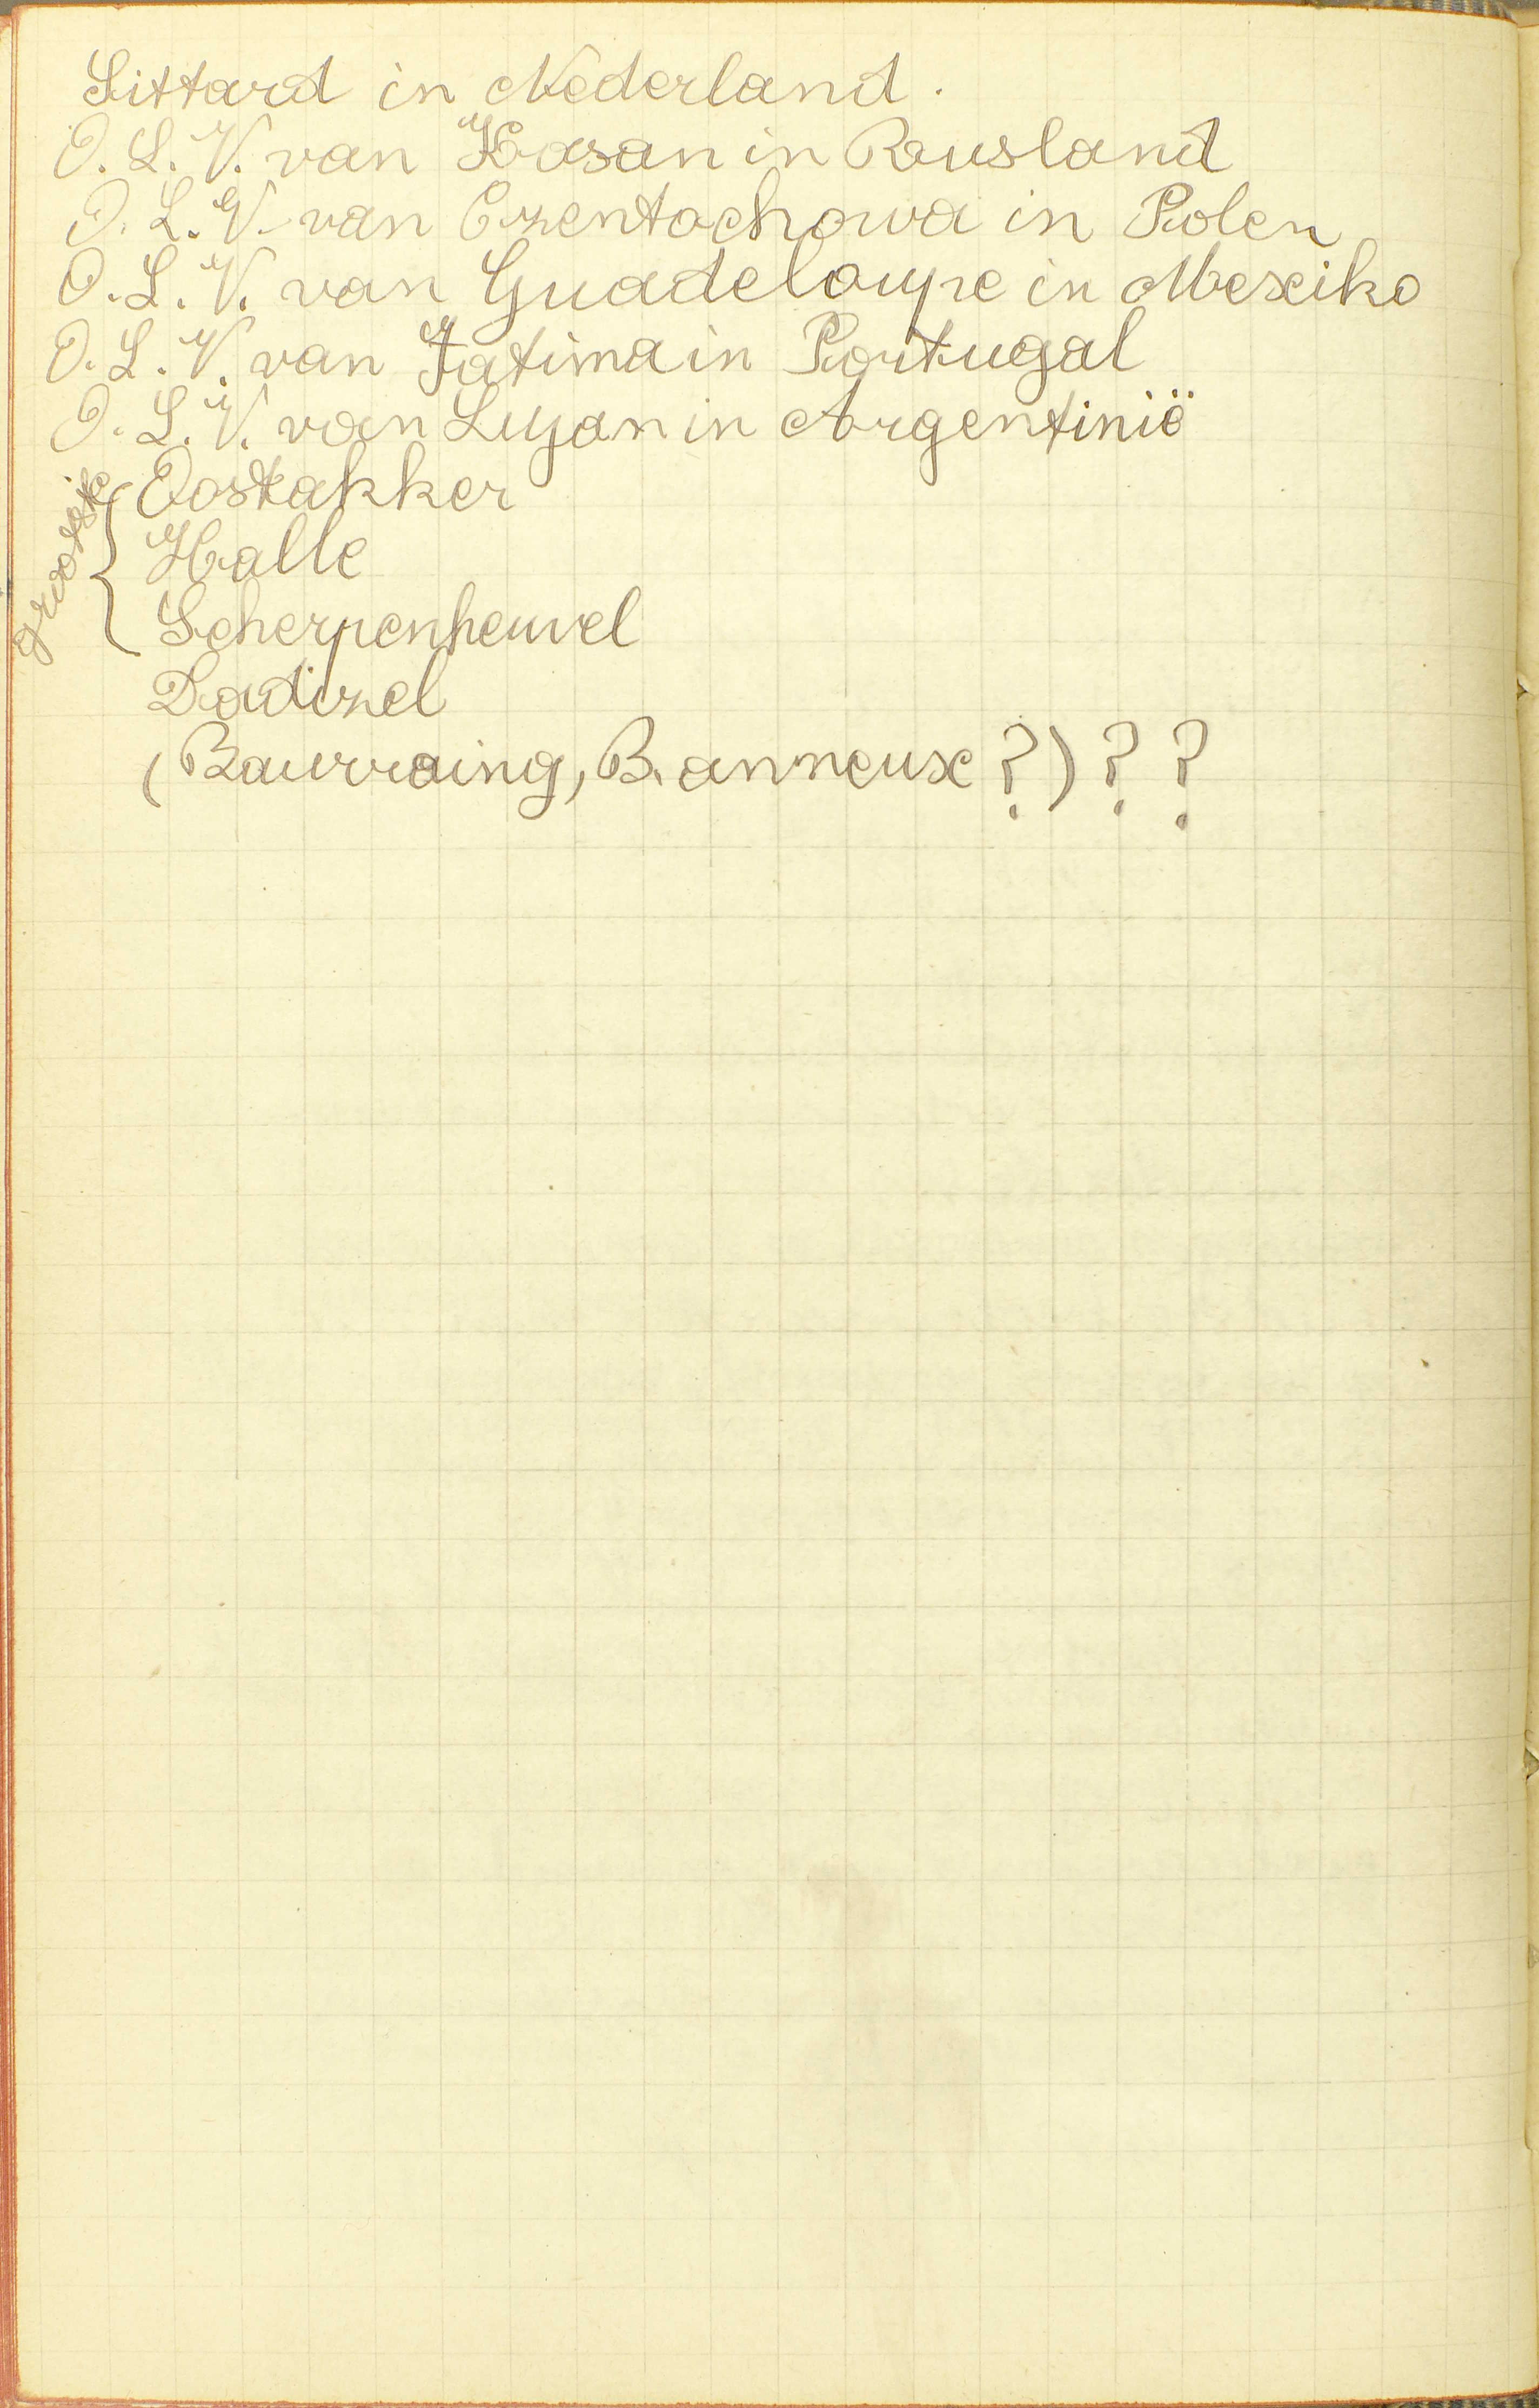 Sittard in Nederland.
O. L. V. van Kasan in Rusland
O. L. V. van Czentochowa in Polen
O. L. V. van Guadeloupe in Mexiko
O. L. V. van Fatima in Portugal
O. L. V. van Luyan in Argentinië
grootste { Oostakker
Halle
Scherpenheuvel
Dadizel
(Bauvraing, Banneux?)??